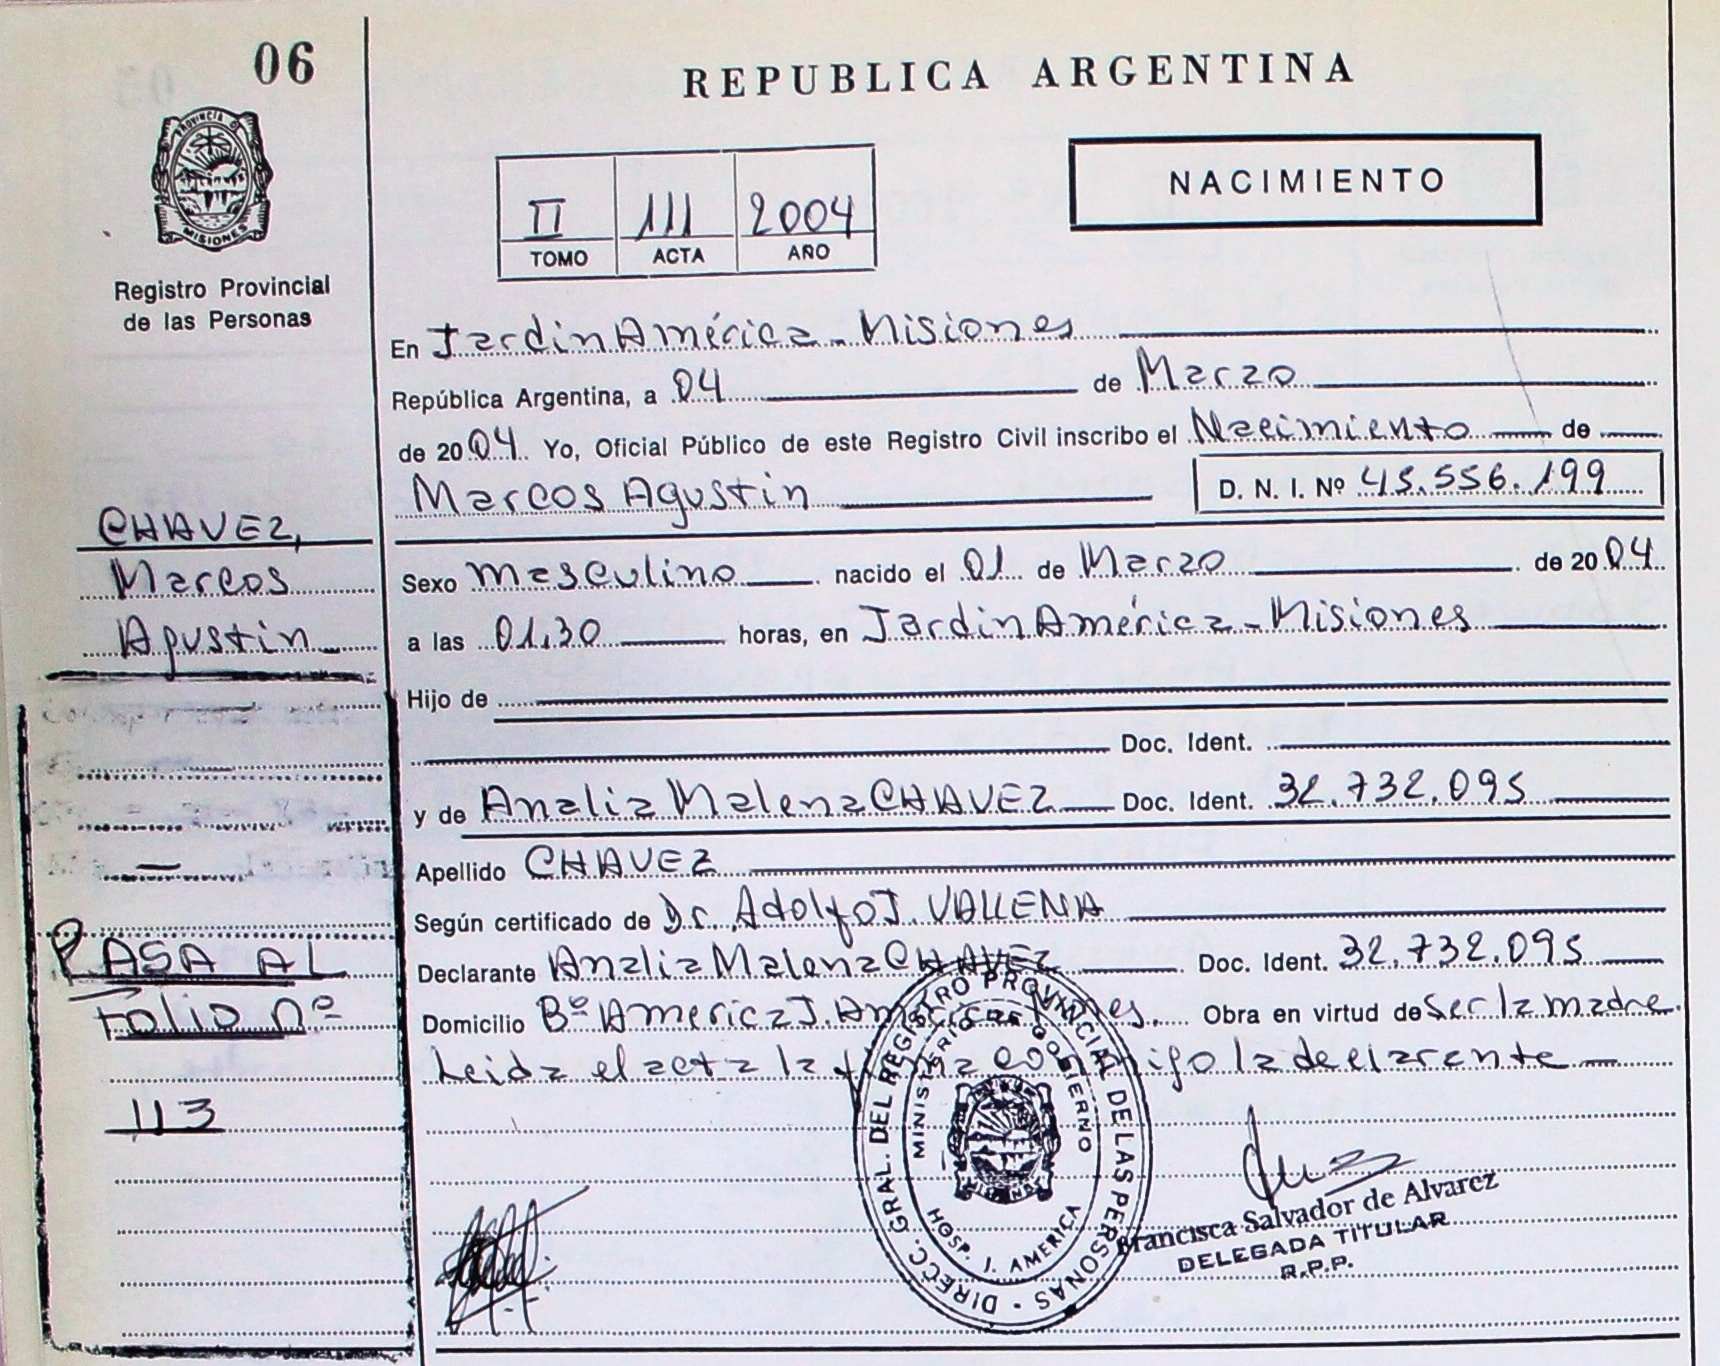 06
REPUBLICA ARGENTINA
PROVINCIA D
MISIONES
Registro Provincial
de las Personas
II 111 2004
TOMO ACTA AÑO
NACIMIENTO
En Jardin América - Misiones
República Argentina, a 04 de Marzo
de 2004 Yo, Oficial Público de este Registro Civil inscribo el Nacimiento de
Marcos Agustin D. N. I. Nº 45.556.199
CHAVEZ,
Marcos
Agustin
Sexo masculino nacido el 01 de Marzo de 2004
a las 01,30 horas, en Jardin América - Misiones
Hijo de
Doc. Ident.
y de Analia Malena CHAVEZ Doc. Ident. 32.732.095
Apellido CHAVEZ
Según certificado de Dr. Adolfo J. VALLENA
Declarante Analia Malena CHAVEZ Doc. Ident. 32.732.095
Domicilio Bº America J. Obra en virtud de ser la madre.
Leida el acta la firma conmigo la declarante
PASA AL
Folio nº
113
DIRECC. GRAL. DEL REGISTRO PROVINCIAL DE LAS PERSONAS
MINISTERIO DE GOBIERNO
HOSP. J. AMERICA
Francisca Salvador de Alvarez
DELEGADA TITULAR
R.P.P.